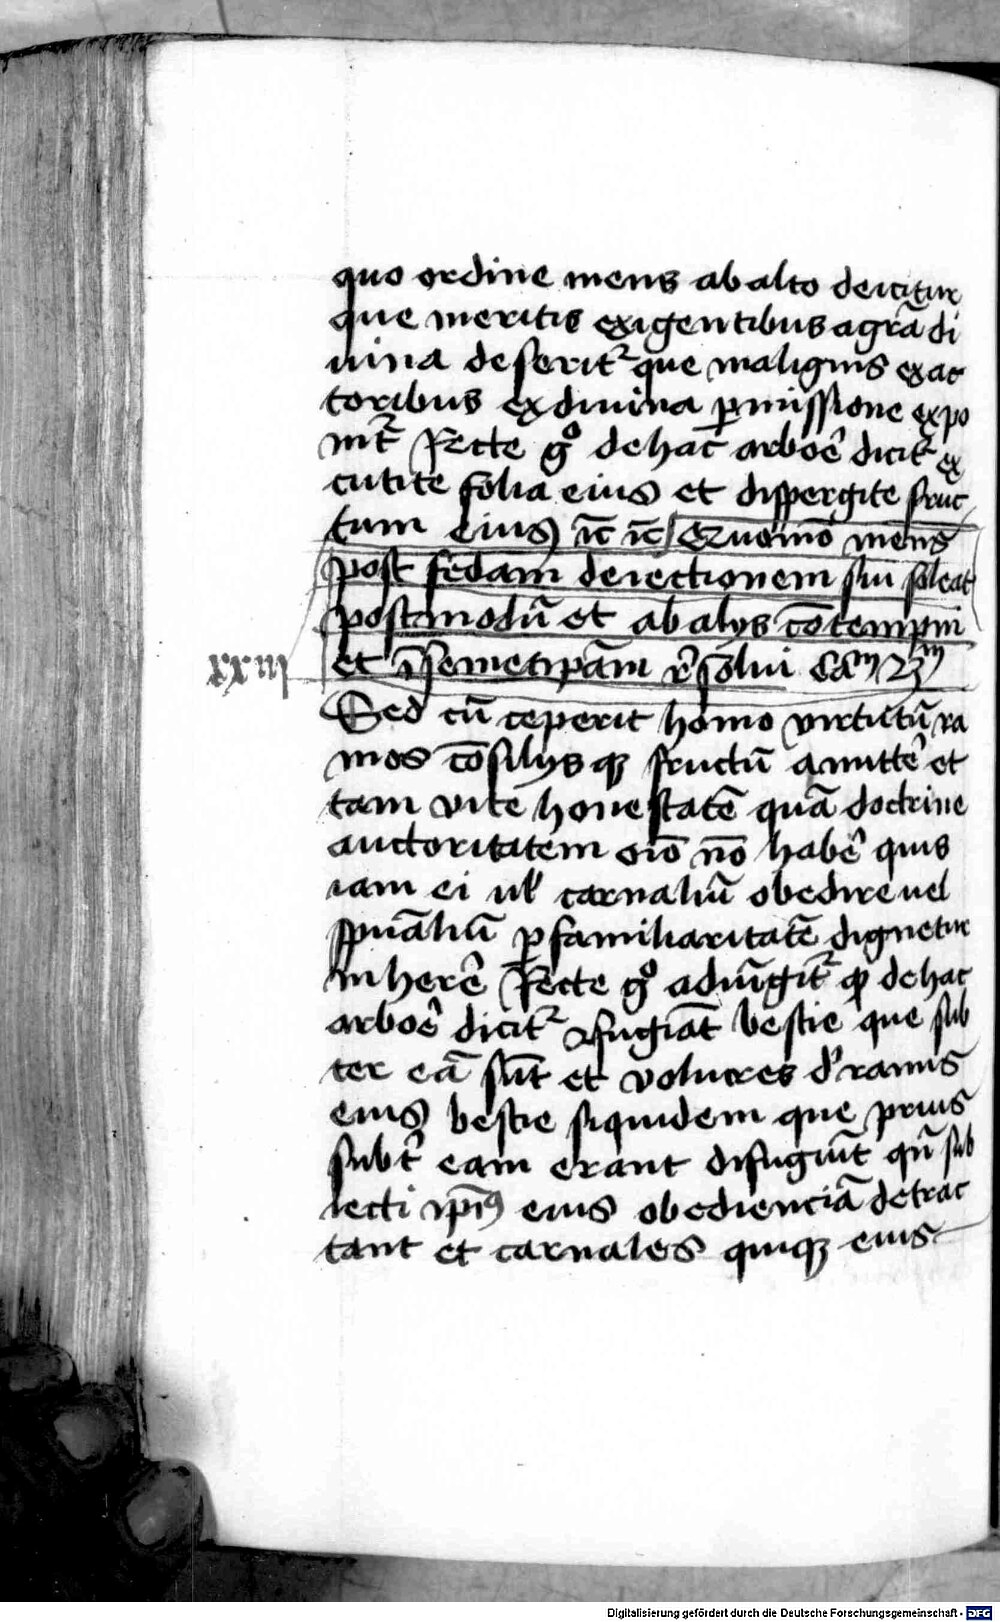 quo ordine mens ab alto deicitur
que meritis exigentibus a gr̄a di
uina deserit᷑ que malignis exac
toribus ex diuina ꝑmissione expo
nit᷑ Recte gͦ de hac arboē dicit᷑ ex
cutite folia eius et dispergite fruc
tum eius ī c̄ ī c̄ Quomō mens
post fedam deiectionem sui soleat
postmodū et ab alijs cōtempni
et ī semetipām
xxiij
Sed cū ceperit homo virtutū ra
mos cōsilijsqꝫ fructū amittē et
tam vite honestatē quā doctrine
auctoritatem oīo nō habē quis
iam ei ul̄ carnaliū obedire uel
sp̄uāliū ꝑ familiaritatē dignetur
inherē Recte gͦ adiūgit᷑ qd̄ de hac
arboē dicit᷑ diffugiāt bestie que sub
ter eā sūt et volucres d̄ ramis
eius bestie siquidem que prius
subt̄ eam erant difugiūt qn̄ sub
iecti ip̄iꝰ eius obedienciā detrac
tant et carnales quiqꝫ eius
Digitalisierung gefördert durch die Deutsche Forschungsgemeinschaft - DFG